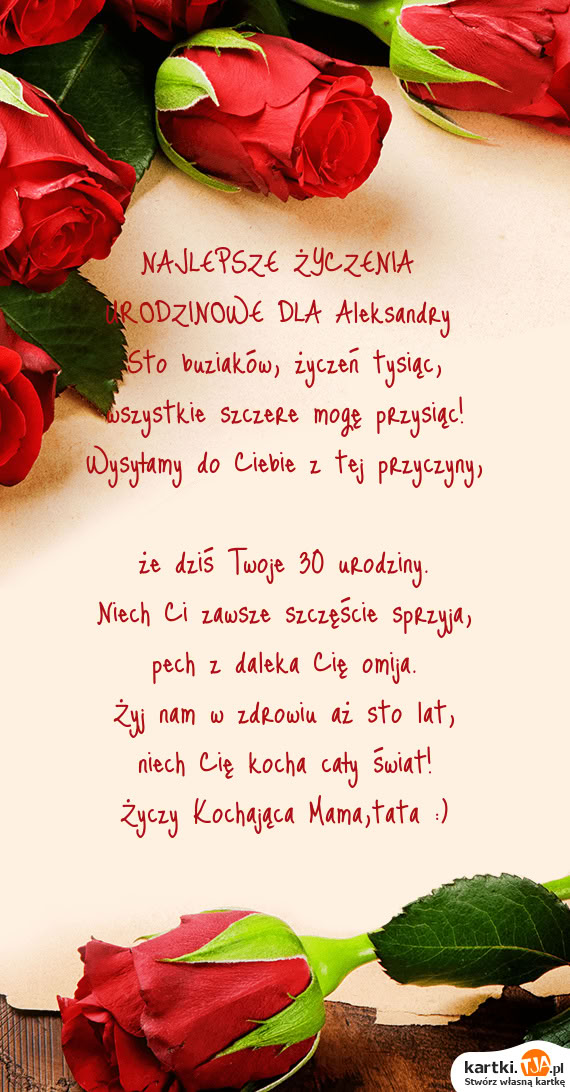 NAJLEPSZE ŻYCZENIA
URODZINOWE DLA Aleksandry
Sto buziaków, życzeń tysiąc,
wszystkie szczere mogę przysiąc!
Wysyłamy do Ciebie z tej przyczyny,
że dziś Twoje 30 urodziny.
Niech Ci zawsze szczęście sprzyja,
pech z daleka Cię omija.
Żyj nam w zdrowiu aż sto lat,
niech Cię kocha cały świat!
Życzy Kochająca Mama,tata :)
kartki.TJA.pl
Stwórz własną kartkę